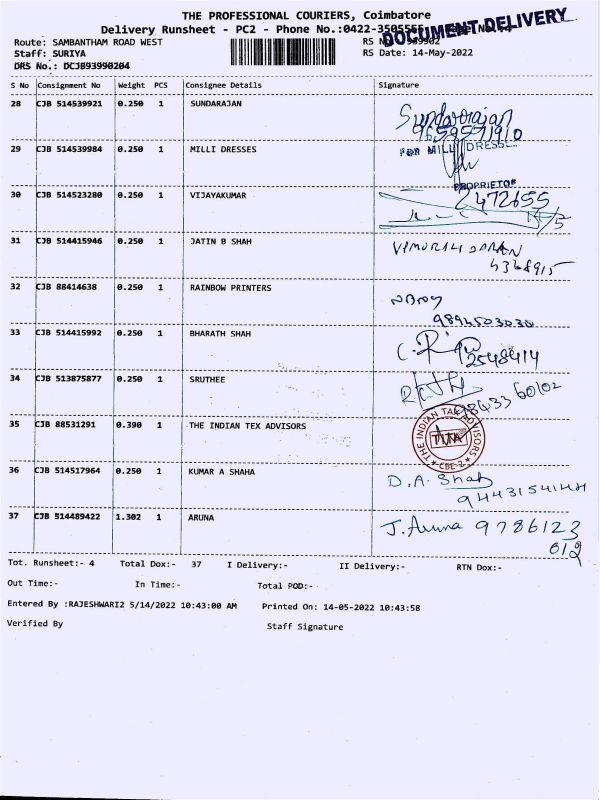 THE PROFESSIONAL COURIERS, Coimbatore
Delivery Runsheet - PC2 - Phone No.:0422-3505555
DOCUMENT DELIVERY
Route: SAMBANTHAM ROAD WEST
Staff: SURIYA
RS Date: 14-May-2022
DRS No.: DCJB93990204
S No Consignment No Weight PCS Consignee Details Signature
28 CJB 514539921 0.250 1 SUNDARAJAN Sundararajan
9659571910
29 CJB 514539984 0.250 1 MILLI DRESSES FOR MILLI DRESSES
PROPRIETOR
30 CJB 514523280 0.250 1 VIJAYAKUMAR 2472655
14/5
31 CJB 514415946 0.250 1 JATIN B SHAH
4368915
32 CJB 88414638 0.250 1 RAINBOW PRINTERS
9894503030
33 CJB 514415992 0.250 1 BHARATH SHAH
2548414
34 CJB 513875877 0.250 1 SRUTHEE
9843360102
35 CJB 88531291 0.390 1 THE INDIAN TEX ADVISORS THE INDIAN TAX ADVISORS
TITA
CBE-2
36 CJB 514517964 0.250 1 KUMAR A SHAHA D.A. Shah
37 CJB 514489422 1.302 1 ARUNA J. Aruna 9786123
012
Tot. Runsheet:- 4 Total Dox:- 37 I Delivery:- II Delivery:- RTN Dox:-
Out Time:- In Time:- Total POD:-
Entered By :RAJESHWARI2 5/14/2022 10:43:00 AM Printed On: 14-05-2022 10:43:58
Verified By Staff Signature